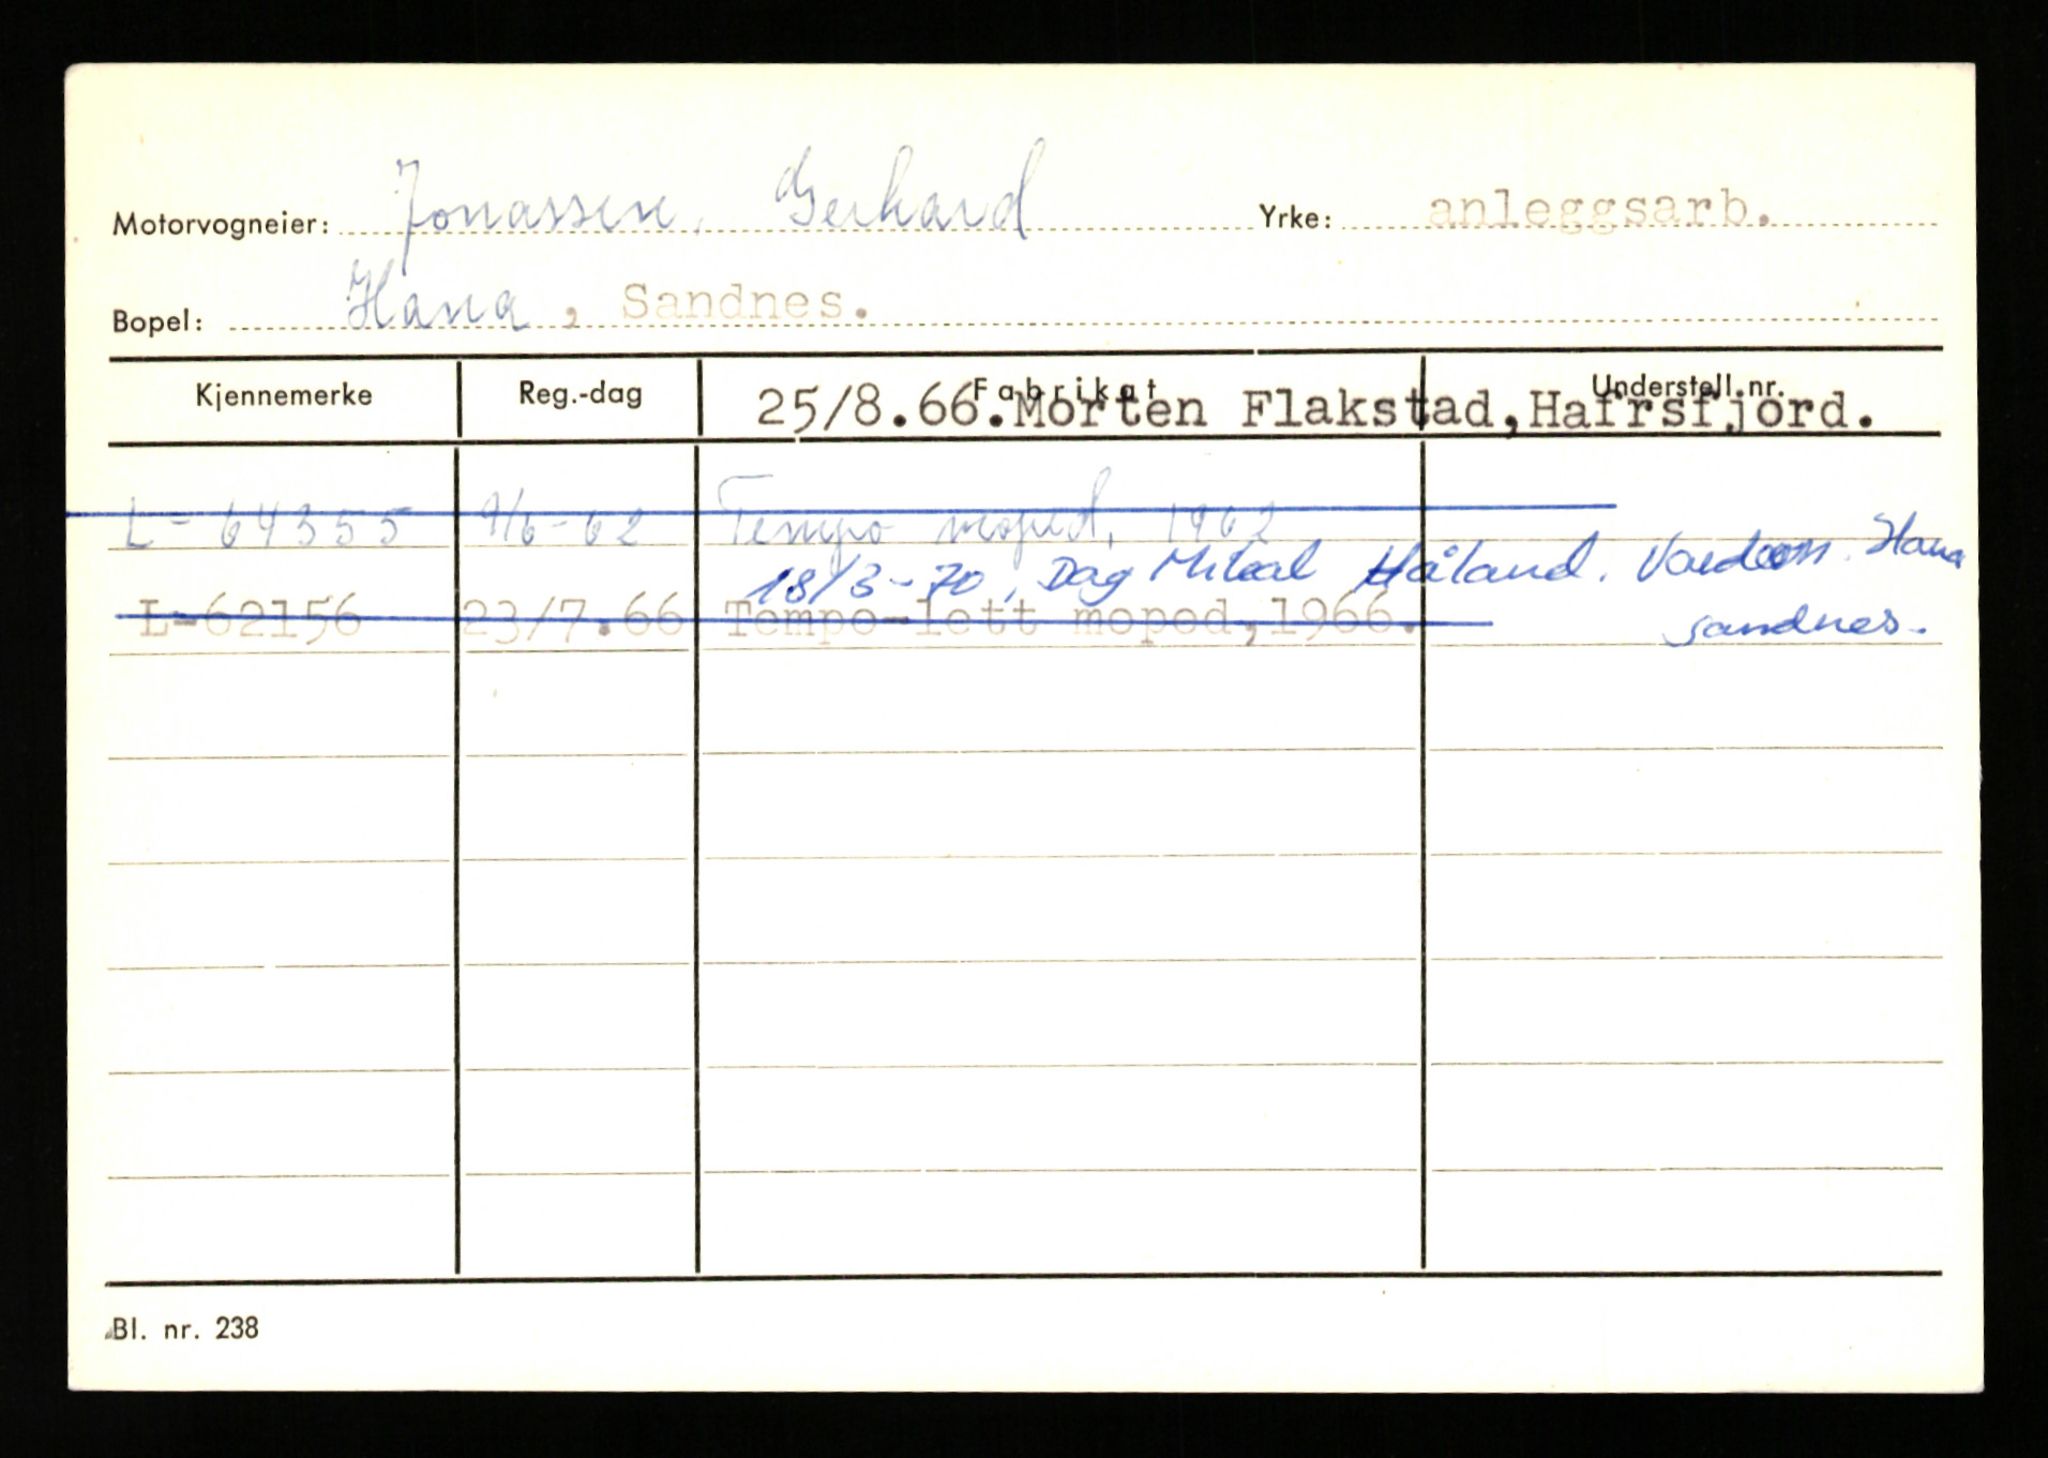 Motorvogneier: Jonassen, Gerhard Yrke: anleggsarb.
Bopel: Hana, Sandnes.
Kjennemerke Reg.-dag Fabrikat Understell.nr.
25/8.66.Morten Flakstad,Hafrsfjord.
L-64355 9/6-62 Tempo moped, 1962
18/3-70, Dag Mikal Håland. Hana
L-62156 23/7.66 Tempo-lett moped,1966. sandnes.
Bl. nr. 238